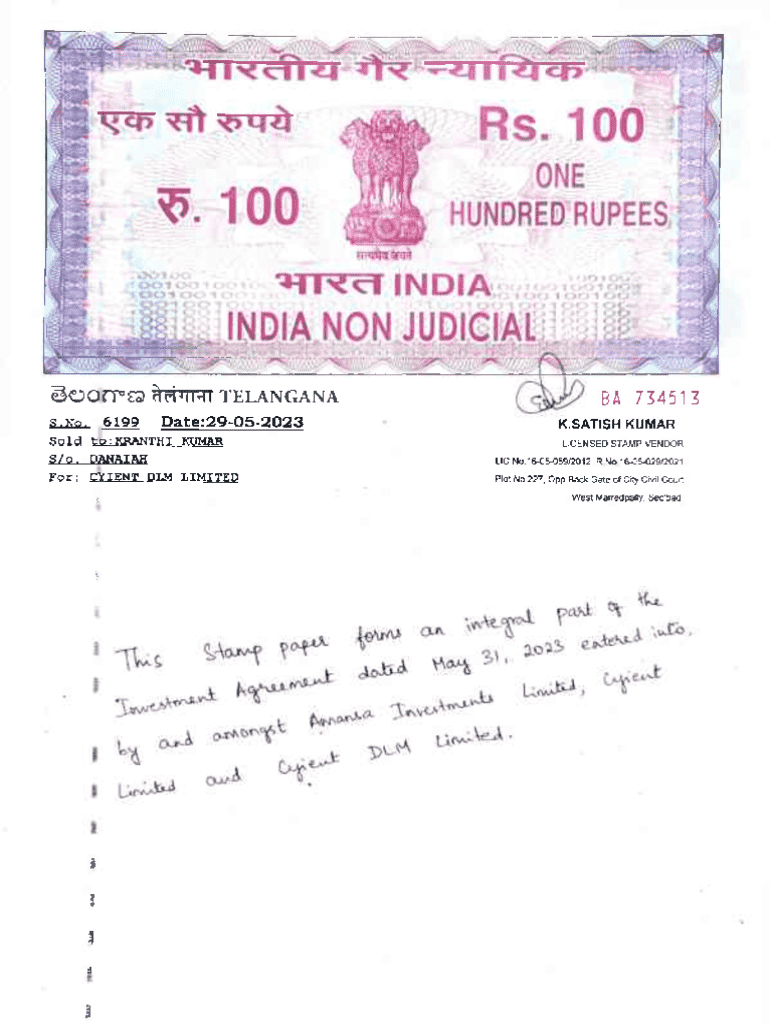 भारतीय गैर न्यायिक
एक सौ रुपये
Rs. 100
रु. 100
ONE
HUNDRED RUPEES
सत्यमेव जयते
भारत INDIA
INDIA NON JUDICIAL
తెలంగాణ तेलंगाना TELANGANA
BA 734513
S.No. 6199 Date:29-05-2023
K.SATISH KUMAR
Sold to:KRANTHI KUMAR
LICENSED STAMP VENDOR
S/o. DANAIAH
LIC No.16-05-059/2012 R.No.16-05-029/2021
For: CYIENT DLM LIMITED
Plot No.227, Opp Back Gate of City Civil Court
West Marredpally, Sec'bad
This Stamp paper forms an integral part of the
Investment Agreement dated May 31, 2023 entered into,
by and amongst Amansa Investments Limited, Cyient
Limited and Cyient DLM Limited.